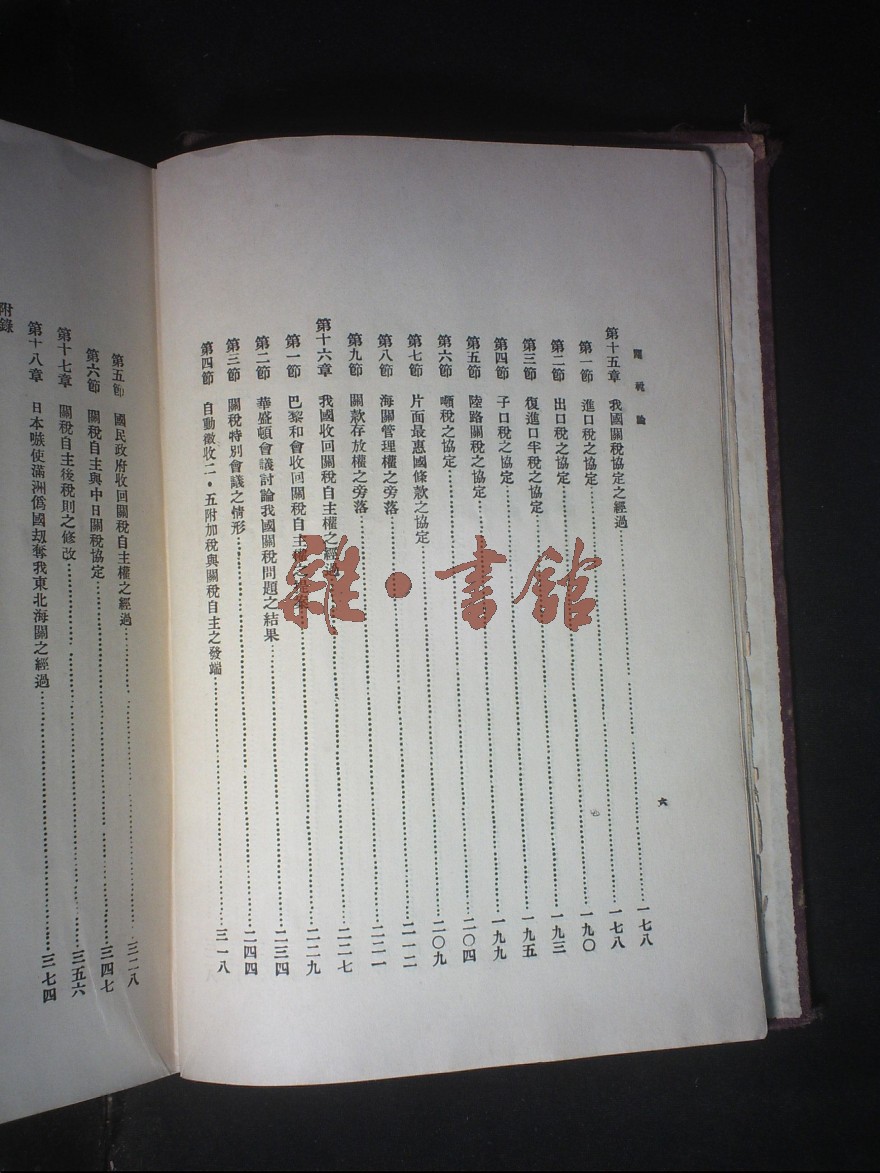 關稅論
六
第十五章 我國關稅協定之經過 一七八
第一節 進口稅之協定 一九〇
第二節 出口稅之協定 一九三
第三節 復進口半稅之協定 一九五
第四節 子口稅之協定 一九九
第五節 陸路關稅之協定 二〇四
第六節 噸稅之協定 二〇九
第七節 片面最惠國條款之協定 二一二
第八節 海關管理權之旁落 二二一
第九節 關款存放權之旁落 二二七
第十六章 我國收回關稅自主權之經過 二二九
第一節 巴黎和會收回關稅自主權之 二三四
第二節 華盛頓會議討論我國關稅問題之結果
第三節 關稅特別會議之情形 二四四
第四節 自動徵收二·五附加稅與關稅自主之發端 三一八
第五節 國民政府收回關稅自主權之經過 三二八
第六節 關稅自主與中日關稅協定 三四七
第十七章 關稅自主後稅則之修改 三五六
第十八章 日本嗾使滿洲僞國刧奪我東北海關之經過 三七四
附錄
雜·書館